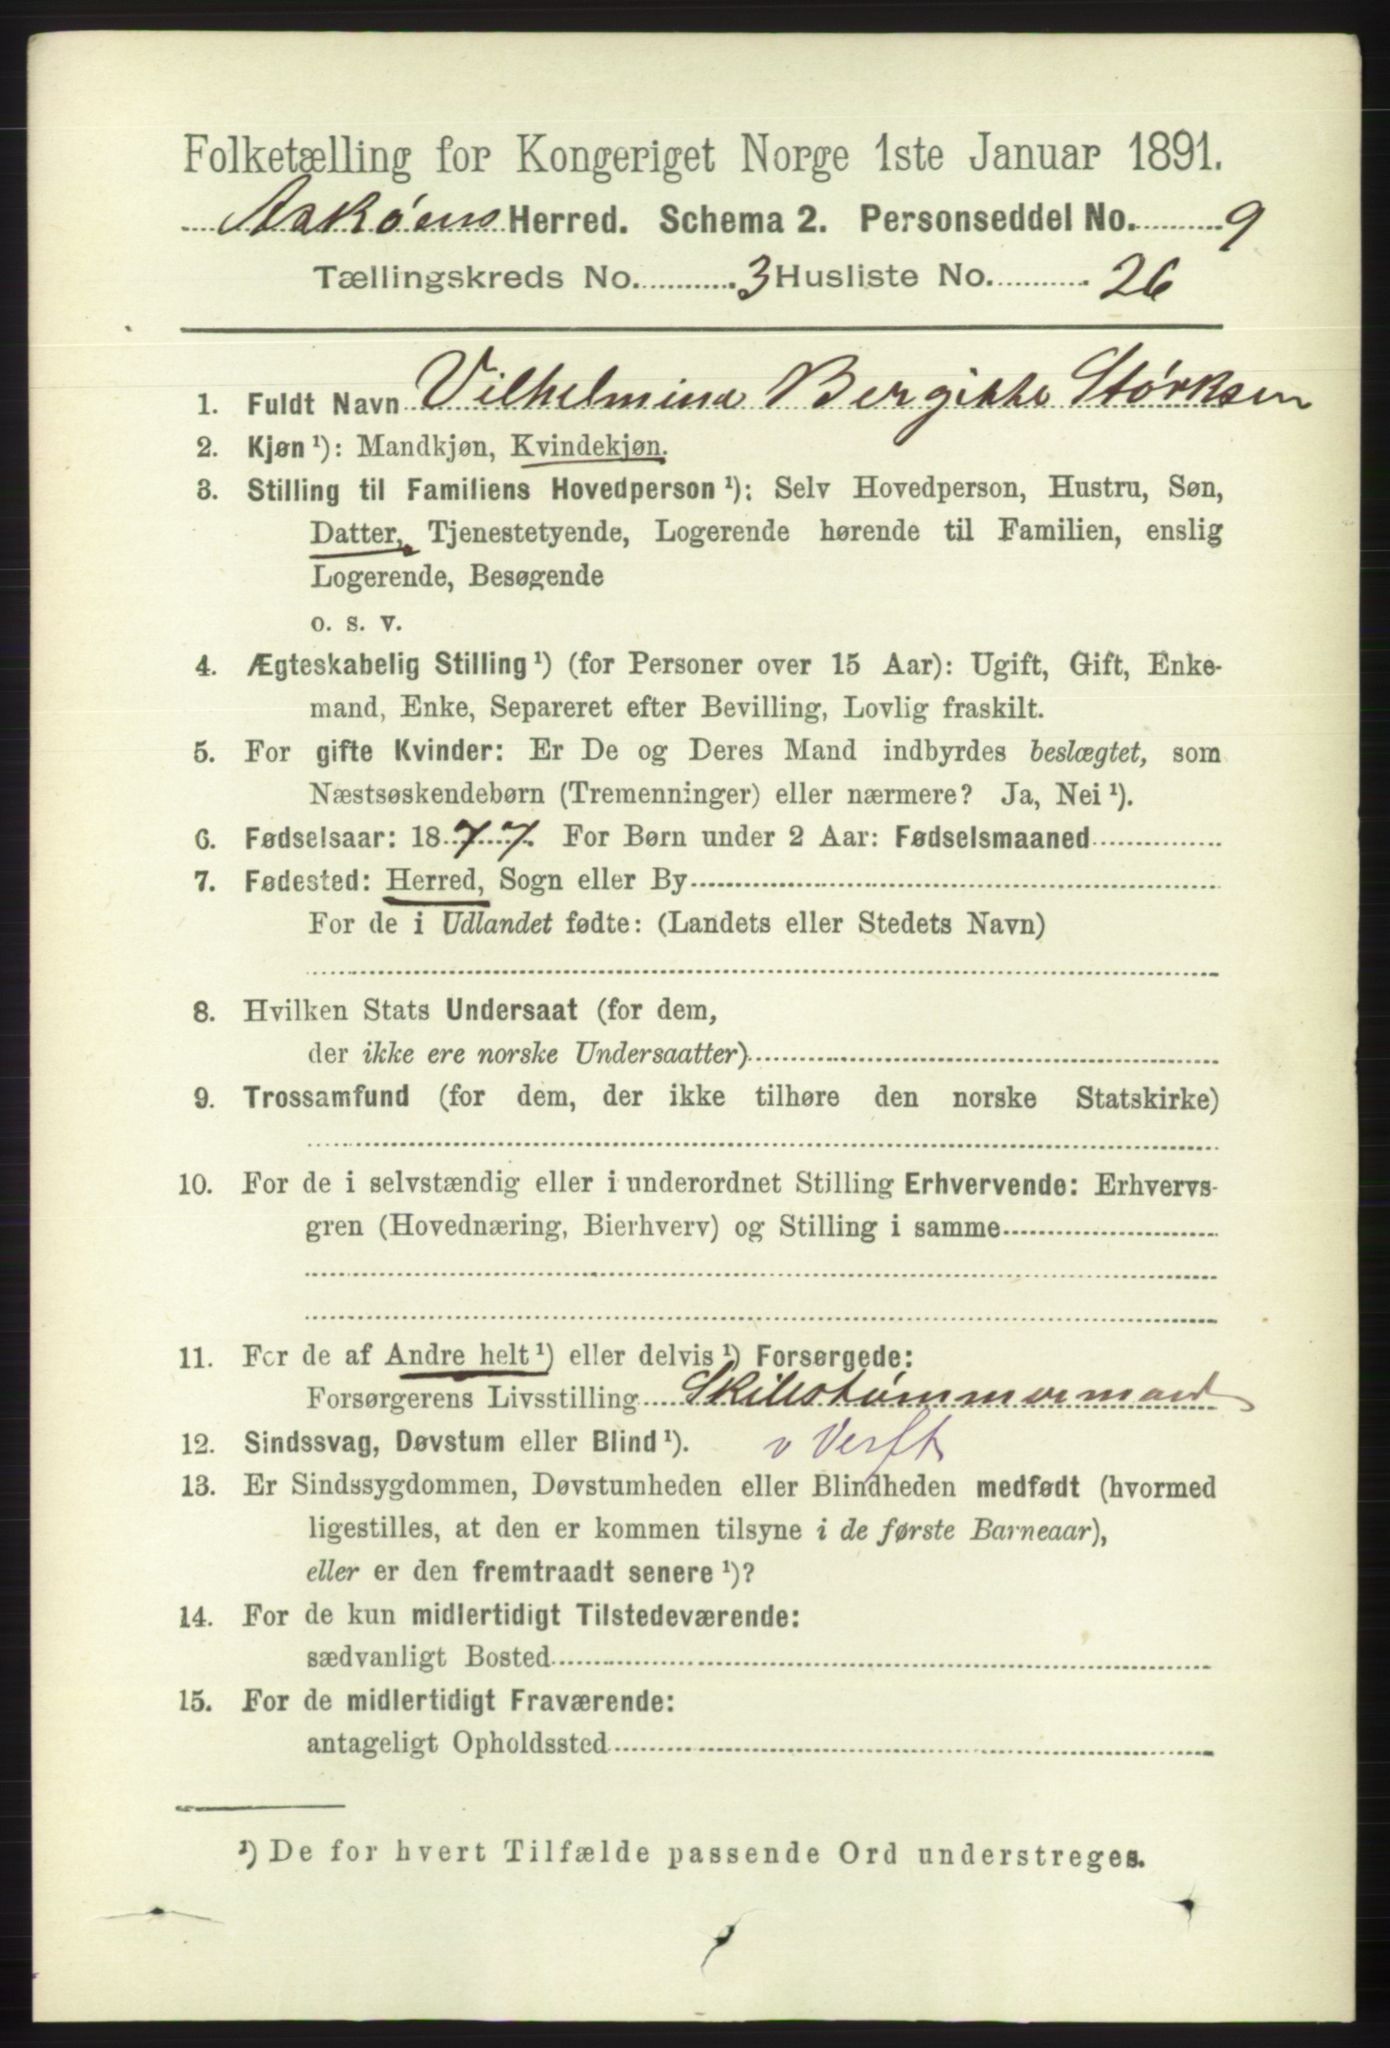 Folketælling for Kongeriget Norge 1ste Januar 1891.
Askøens Herred. Schema 2. Personseddel No. 9
Tællingskreds No. 3 Husliste No. 26
1. Fuldt Navn Vilhelmina Bergitte Størksen
2. Kjøn ¹): Mandkjøn, Kvindekjøn.
3. Stilling til Familiens Hovedperson ¹): Selv Hovedperson, Hustru, Søn,
Datter, Tjenestetyende, Logerende hørende til Familien, enslig
Logerende, Besøgende
o. s. v.
4. Ægteskabelig Stilling ¹) (for Personer over 15 Aar): Ugift, Gift, Enke-
mand, Enke, Separeret efter Bevilling, Lovlig fraskilt.
5. For gifte Kvinder: Er De og Deres Mand indbyrdes beslægtet, som
Næstsøskendebørn (Tremenninger) eller nærmere? Ja, Nei ¹).
6. Fødselsaar: 1877. For Børn under 2 Aar: Fødselsmaaned
7. Fødested: Herred, Sogn eller By
For de i Udlandet fødte: (Landets eller Stedets Navn)
8. Hvilken Stats Undersaat (for dem,
der ikke ere norske Undersaatter)
9. Trossamfund (for dem, der ikke tilhøre den norske Statskirke)
10. For de i selvstændig eller i underordnet Stilling Erhvervende: Erhvervs-
gren (Hovednæring, Bierhverv) og Stilling i samme
11. For de af Andre helt ¹) eller delvis ¹) Forsørgede:
Forsørgerens Livsstilling Skibstømmermand
12. Sindssvag, Døvstum eller Blind ¹). v Verft
13. Er Sindssygdommen, Døvstumheden eller Blindheden medfødt (hvormed
ligestilles, at den er kommen tilsyne i de første Barneaar),
eller er den fremtraadt senere ¹)?
14. For de kun midlertidigt Tilstedeværende:
sædvanligt Bosted
15. For de midlertidigt Fraværende:
antageligt Opholdssted
¹) De for hvert Tilfælde passende Ord understreges.